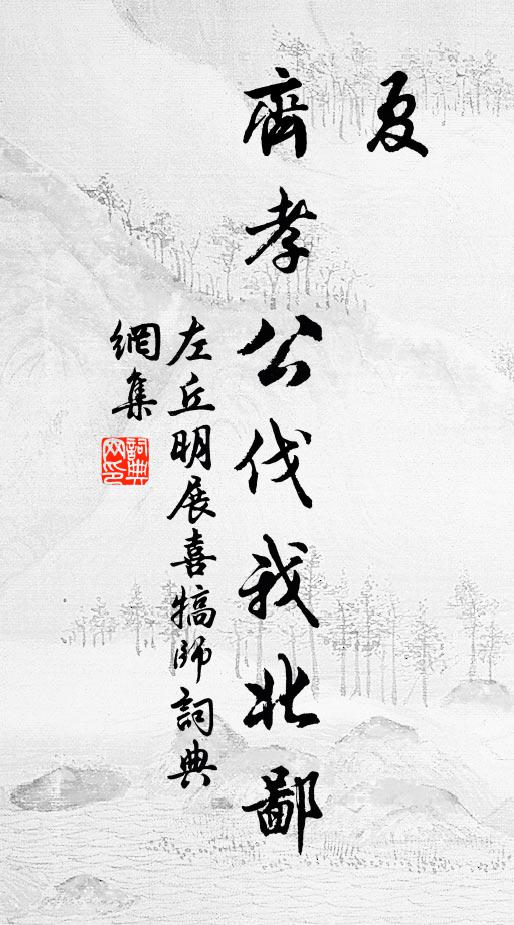 夏
齊孝公伐我北鄙
左丘明展喜犒師詞典
網集
詞典
网印